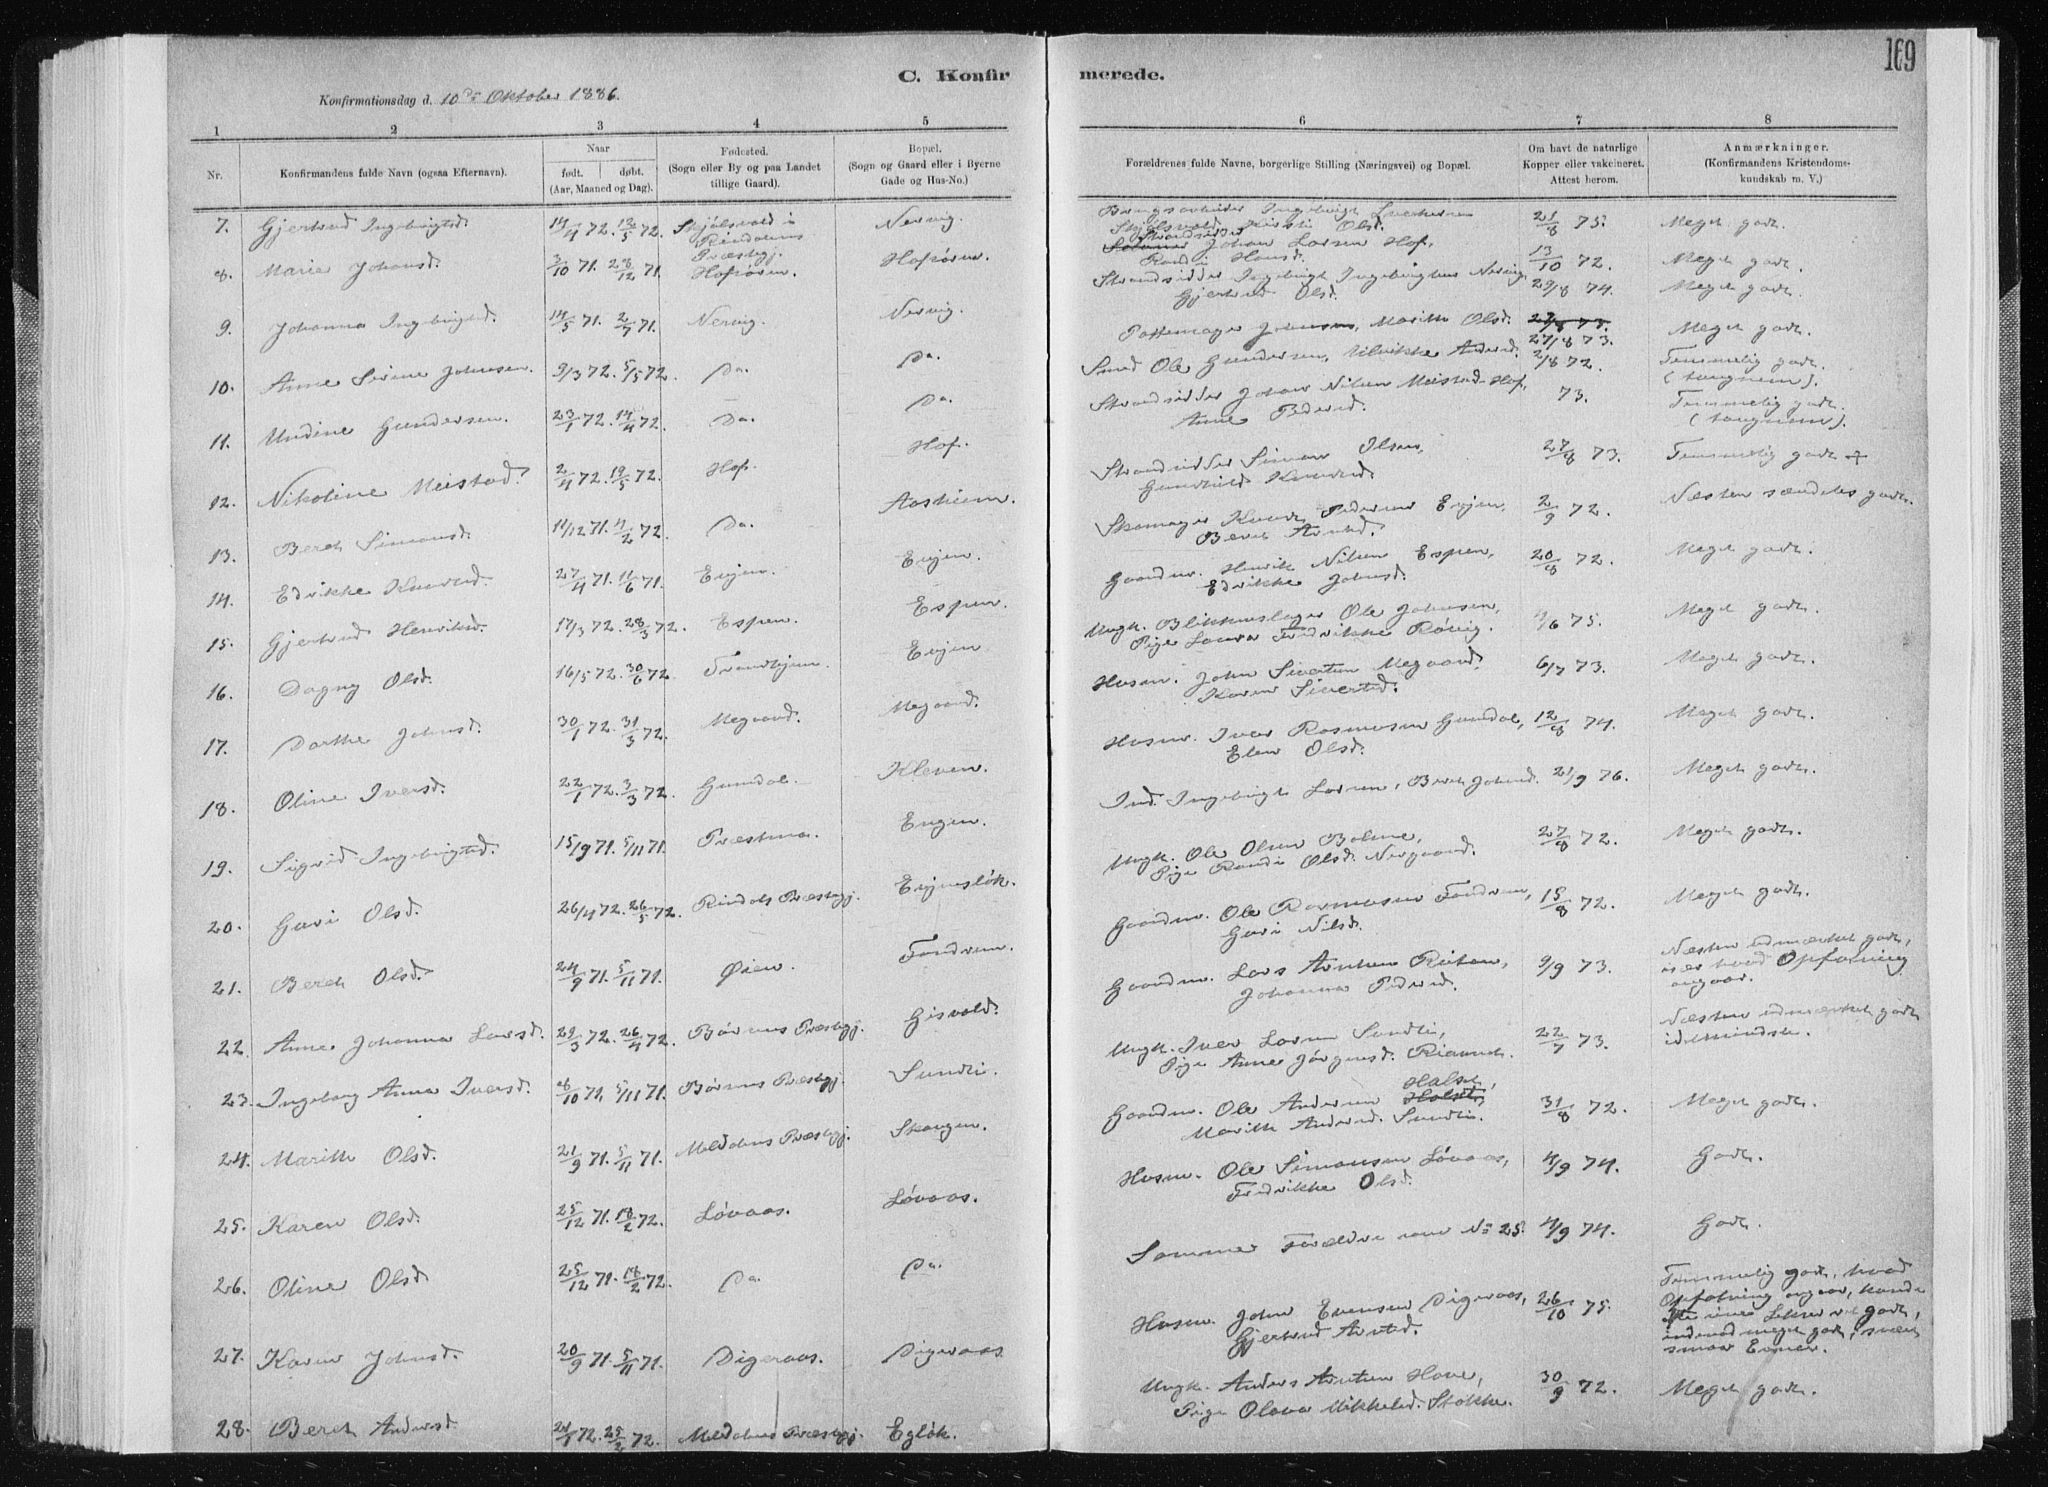 169
C. Konfirmerede.
Konfirmationsdag d. 10de Oktober 1886.
1 2 3 4 5 6 7 8
Nr. Konfirmandens fulde Navn (ogsaa Efternavn). Naar født. døbt. (Aar, Maaned og Dag). Fødested. (Sogn eller By og paa Landet tillige Gaard). Bopæl. (Sogn og Gaard eller i Byerne Gade og Hus-No.) Forældrenes fulde Navne, borgerlige Stilling (Næringsvei) og Bopæl. Om havt de naturlige Kopper eller vakcineret. Attest herom. Anmærkninger. (Konfirmandens Kristendomskundskab m. V.)
7. Gjertrud Ingebrigtsd. 14/4 72. 12/5 72. Skjølsvold i Rindalens Præstegj. Nervig. Ingebrigt Skjølsvold, Kirsti Olsd. 21/8 75. Meget godt.
8. Marie Johansd. 3/10 71. 28/12 71. Hofsøren. Hofsøren. Strandsidder Johan Larsen Hof, Randi Hansd. 13/10 72. Meget godt.
9. Johanna Ingebrigtsd. 14/5 71. 2/7 71. Nervig. Nervig. Strandsidder Ingebrigt Ingebrigtsen Nervig, Gjertrud Olsd. 29/8 74. Meget godt.
10. Anne Sirine Johnsen. 9/3 72. 5/5 72. Do. Do. Pottemager Johnsen, Marith Olsd. 27/8 73. 27/8 73. Meget godt.
11. Undine Gundersen. 23/1 72. 14/4 72. Do. Do. Smed Ole Gundersen, Ulrikke Andersd. 2/8 72. Temmelig godt. (tungnem).
12. Nikoline Meistad. 2/4 72. 19/5 72. Hof. Hof. Strandsidder Johan Nilsen Meistad-Hof, Anne Pedersd. 73. Temmelig godt. (tungnem).
13. Bereth Simonsd. 11/12 71. 11/2 72. Do. Aashiem. Strandsidder Simon Olsen, Gunhild Knudsd. 27/8 73. Temmelig godt +
14. Edrikke Knudsd. 27/4 71. 11/6 71. Evjen. Evjen. Skomager Knud Pedersen Evjen, Beret Arntsd. 2/9 72. Næsten særdeles godt.
15. Gjertrud Henriksd. 17/3 72. 28/3 72. Espen. Espen. Gaardm. Henrik Nilsen Espen, Edrikke Johnsd. 20/8 72. Meget godt.
16. Dagny Olsd. 16/5 72. 30/6 72 Trondhjem. Evjen Ungk. Blikkenslager Ole Johnsen, Pige Laura Fredrikke Røvig. 4/6 75. Meget godt.
17. Dorthe Johnsd. 30/1 72. 31/3 72. Megaard. Megaard. Husm. John Sivertsen Megaard, Karen Sivertsd. 6/7 73. Meget godt.
18. Oline Iversd. 22/1 72. 3/3 72. Gumdal. Kleven. Husm. Iver Rasmusen Gumdal, Elen Olsd. 12/8 74. Meget godt.
19. Sigrid Ingebrigtsd. 15/9 71. 5/11 71. Præstmo. Engen. Ind. Ingebrigt Larsen, Bereth Johnsd. 21/9 76. Meget godt.
20. Guri Olsd. 26/4 72. 26/5 72. Rindals Præstegj. Evjensløk. Ungk. Ole Olsen Bolme, Pige Randi Olsd. Nergaard. 27/8 72. Meget godt.
21. Bereth Olsd. 24/9 71. 5/11 71. Øien. Fandrem. Gaardm. Ole Rasmusen Fandrem, Guri Nilsd. 15/8 72. Meget godt.
22. Anne Johanna Larsd. 29/3 72. 26/4 72. Børsens Præstegj. Gisvold. Gaardm. Lars Arntsen Riiten, Johanna Pedersd. 9/9 73. Næsten udmærket godt, især hvad Opførsel angaar.
23. Ingeborg Anna Iversd. 18/10 71. 5/11 71. Børsens Præstegj. Sundli. Ungk. Iver Larsen Sundli, Pige Anne Jørgensd. 22/7 73. Næsten udmærket godt idetmindste.
24. Marith Olsd. 21/9 71. 5/11 71. Meldalens Præstegj. Skaugen. Gaardm. Ole Andersen Holst, Halset, Marith Andersd. Sundli. 31/8 72. Meget godt.
25. Karen Olsd. 25/12 71. 18/2 72. Løvaas. Løvaas. Husm. Ole Simonsen Løvaas, Fredrikke Olsd. 4/9 74. Godt.
26. Oline Olsd. 25/12 71. 18/2 72. Do. Do. Samme Forældre som No 25. 4/9 74. Godt.
27. Karen Johnsd. 20/9 71. 5/11 71. Digeraas. Digeraas Husm. John Evensen Digeraas, Gjertrud Arntsd. 26/10 75. Temmelig godt, hvad Opfatning angaar, godt, meget godt, smaa Evner.
28. Bereth Andersd. 24/1 72. 25/2 72. Meldalens Præstegj. Egløk. Ungk. Anders Arntsen Hove, Pige Olava Mikkelsd. Stokke. 30/9 72. Meget godt.